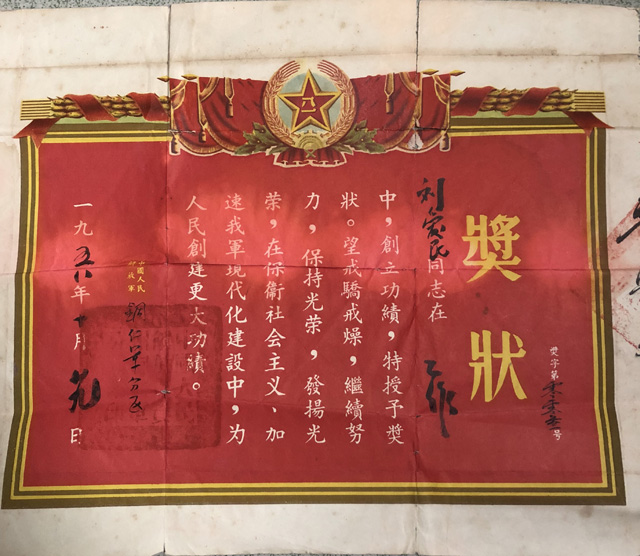 獎狀
獎字第零零号
刘 民同志在 工作
中，創立功績，特授予獎
狀。望戒驕戒燥，繼續努
力，保持光荣，發揚光
荣，在保衛社会主义、加
速我軍現代化建設中，为
人民創建更大功績。
中國人民
解放軍 銅仁軍分区
一九五八年 月 日